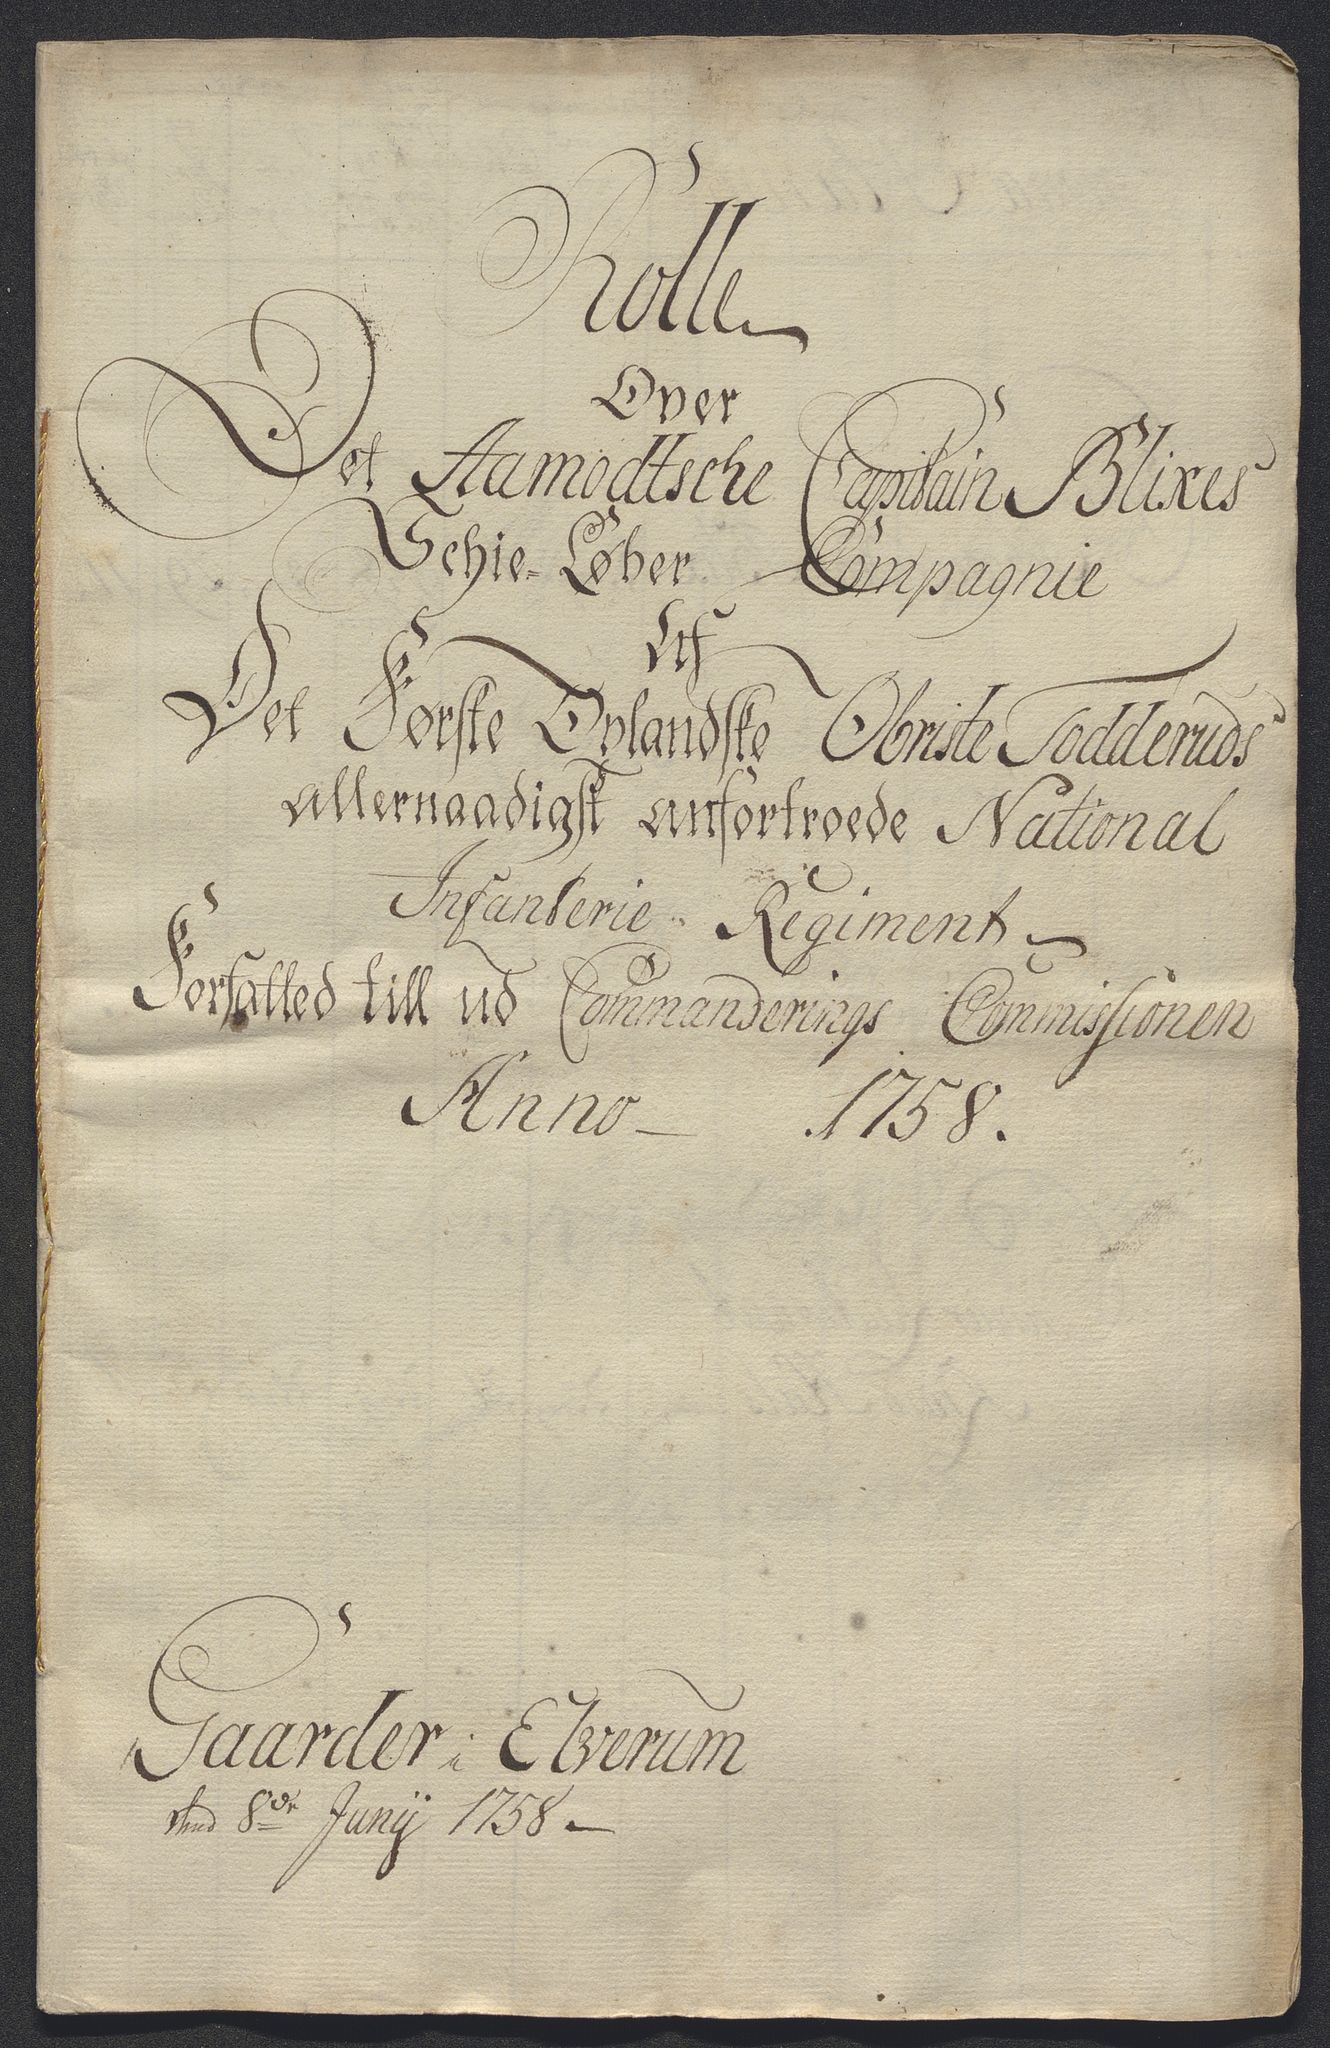 Rolle
Over
Det Aamodtsche Capitain Blixes
Schie-Løber Compagnie
Af
Det Første Oplandske Obriste Todderuds
allernaadigst anfortroede National
Infanterie Regiment
Forfatted till ud Commanderings Commissionen
Anno 1758.
Gaarder i Elverum
8de Junij 1758